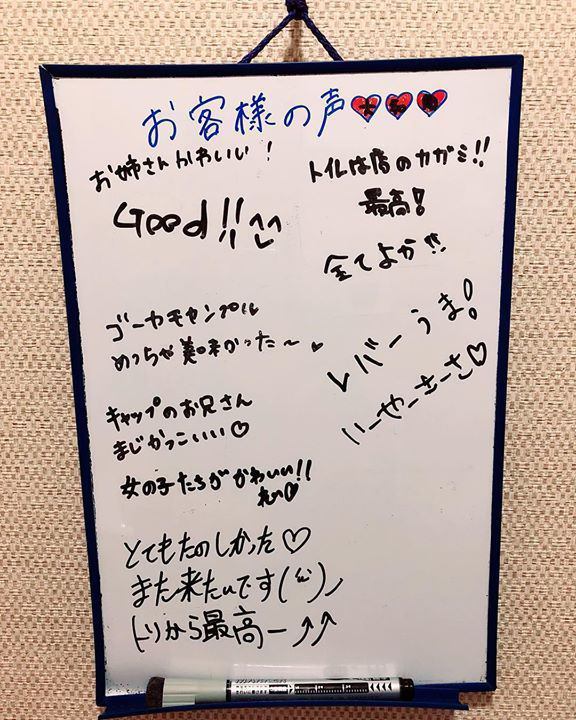 お客様の声
お姉さんかわいい!
Good!!
ゴーヤもチャンプル
めっちゃ美味かった〜
キャップのお兄さん
まじかっこいい♡
女の子たちがかわいい!!
とてもたのしかった♡
また来たいです
トリから最高ー↑↑
トイレは店のカガミ!!
最高!
全てよか!!
レバーうま!
いーやーさーさ♡